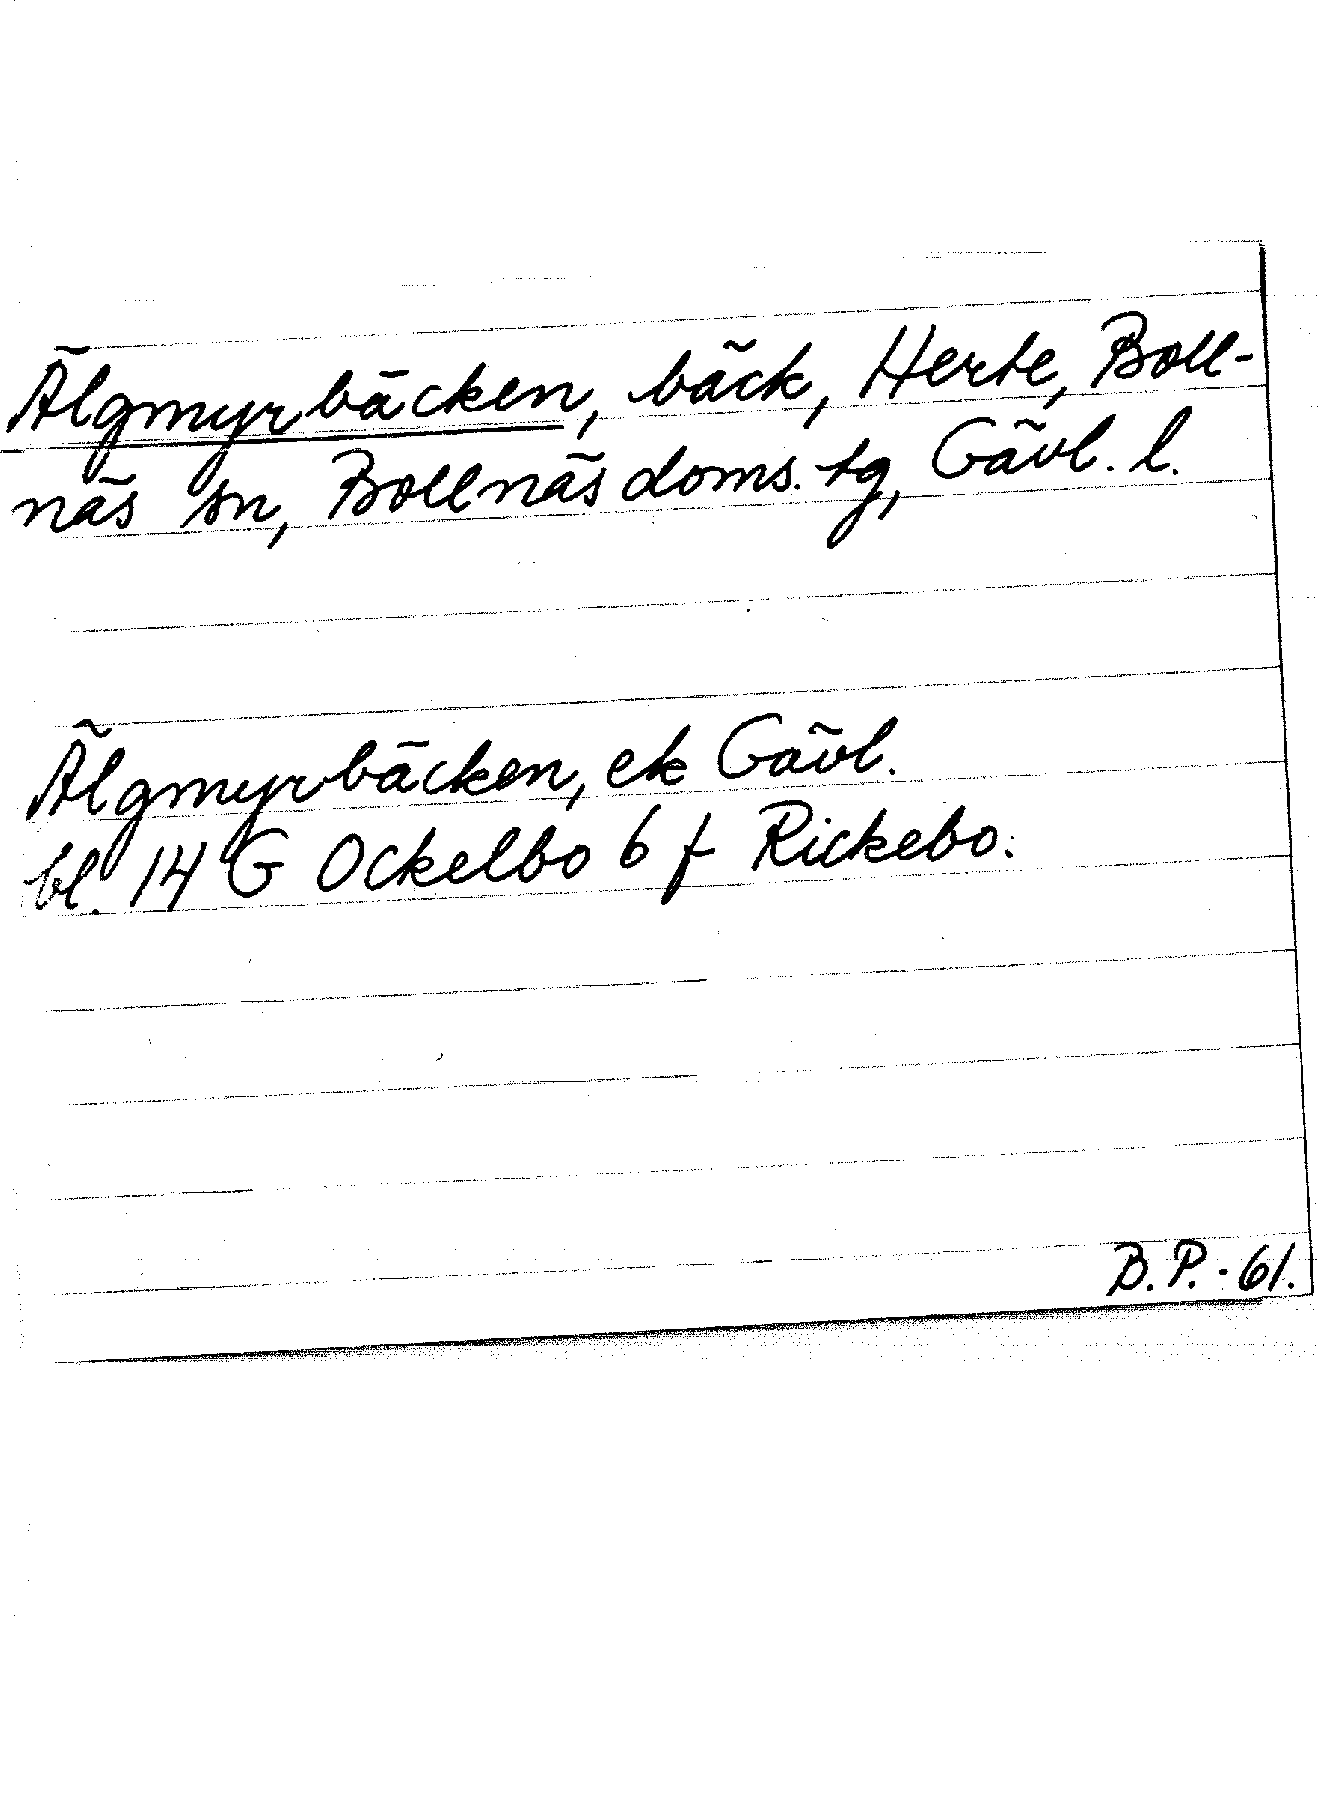 Älgmyrbäcken, bäck, Herte, Boll-
näs sn, Bollnäs doms. tg, Gävl. l.
Älgmyrbäcken, ek Gävl.
bl. 14 G Ockelbo 6 f Rickebo.
B.P. - 61.